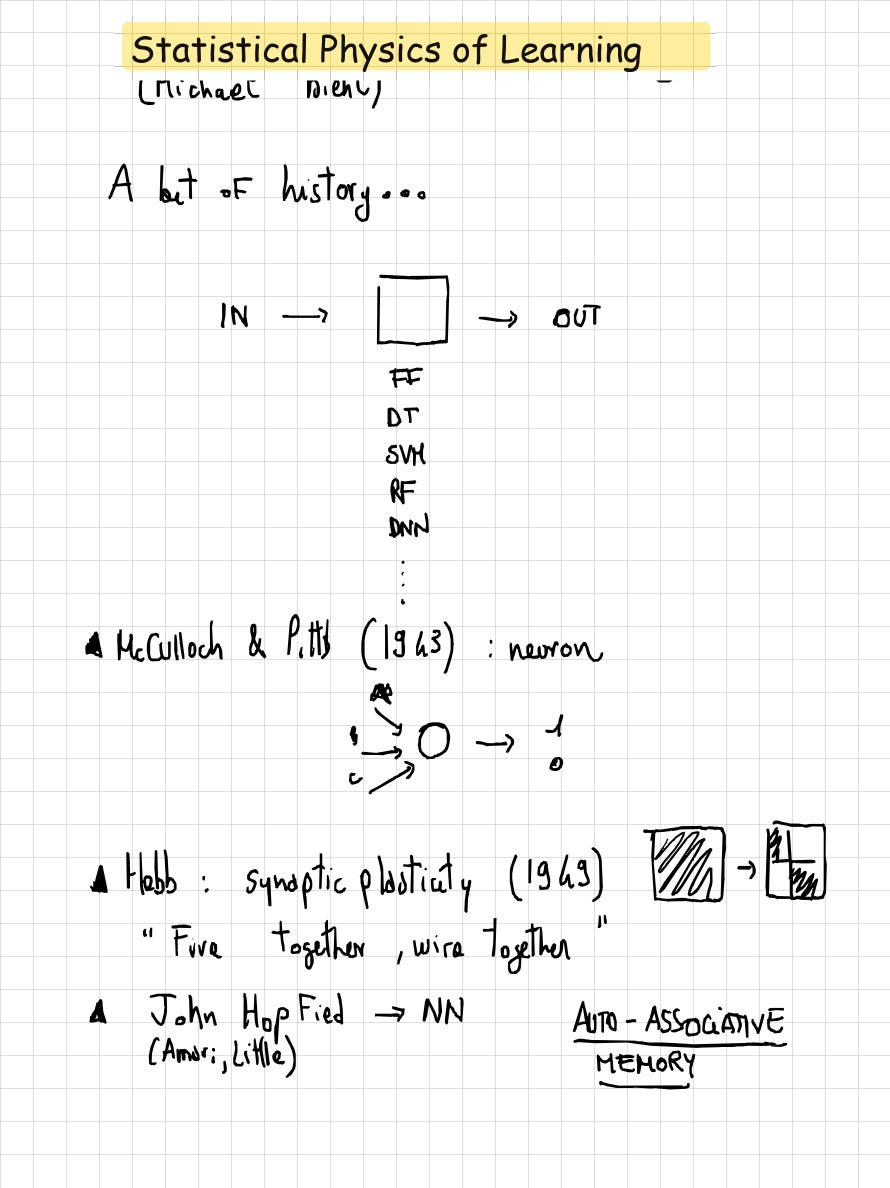 Statistical Physics of Learning
(Michael Biehl)
A bit of history...
IN → → OUT
FF
DT
SVM
RF
DNN
McCulloch & Pitts (1943) : neuron
→ 1
0
c
Hebb : synaptic plasticity (1949) →
" Fire together , wire together "
John HopFied → NN
(Amari, Little)
AUTO - ASSOCIATIVE
MEMORY